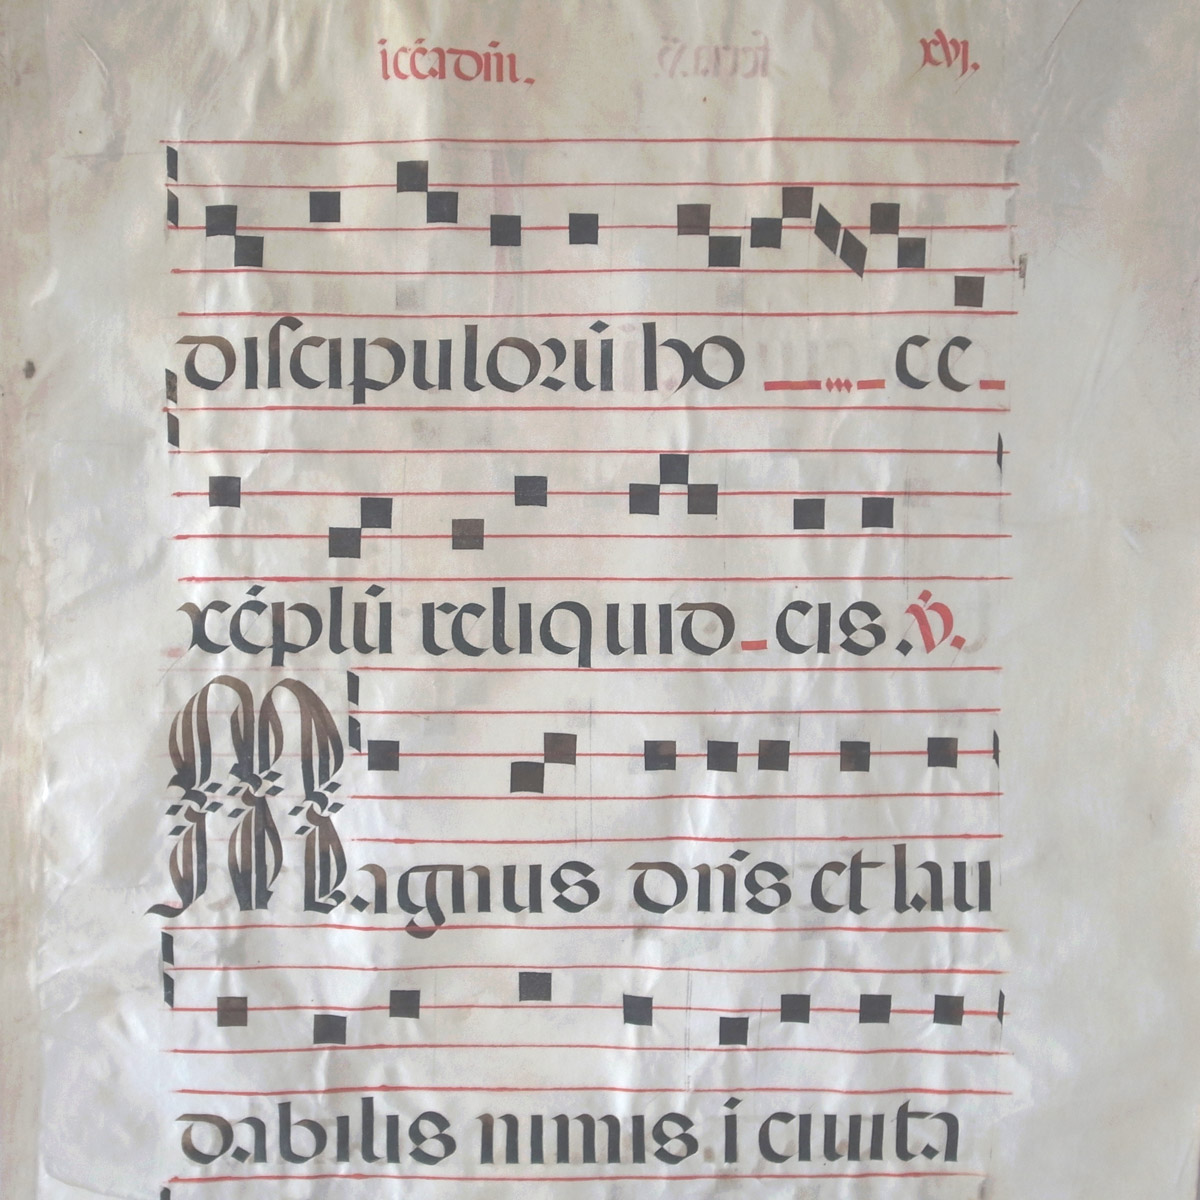 i cēa dm̄. xvj.
discipuloꝛū ho c c
xēplū reliquid eis. ℣.
Magnus dn̄s et lau
dabilis nimis i ciuita